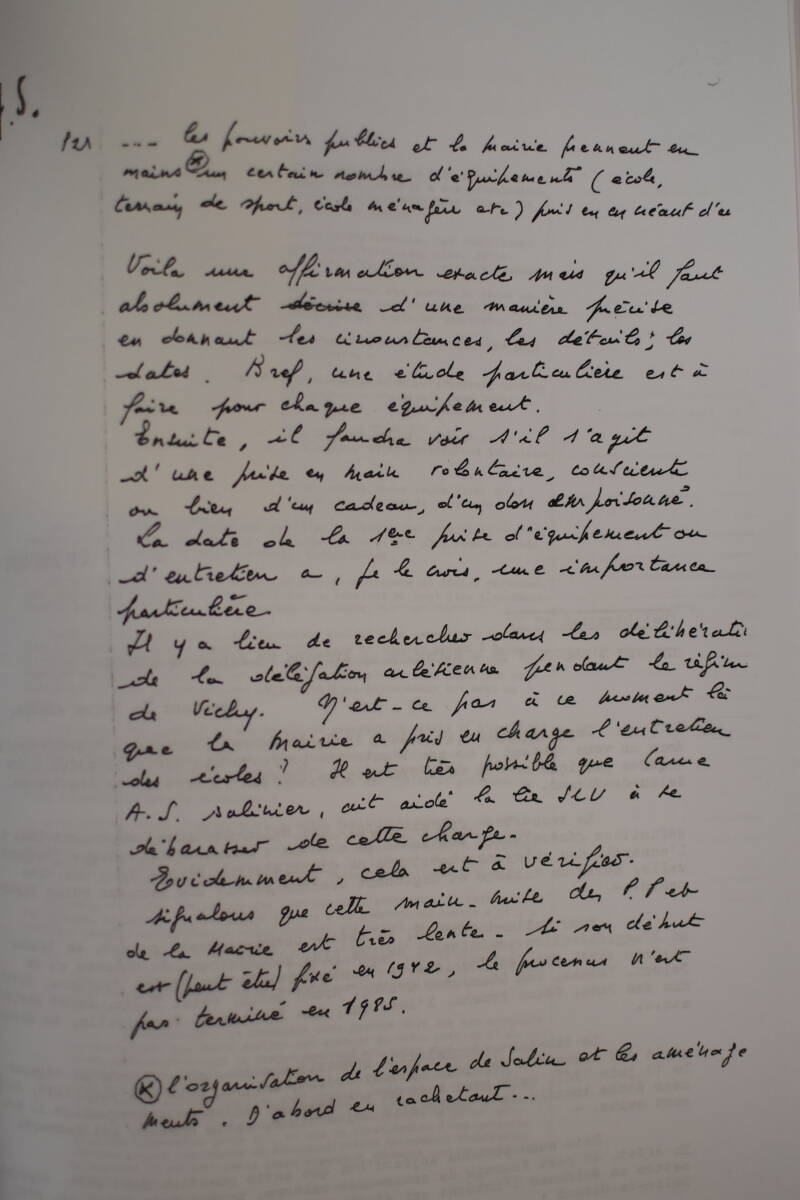 J.S.
121 ... les pouvoirs publics et la mairie prennent en
mains (x) un certain nombre d'équipements (école,
terrain de sport, école ménagère etc) puis en en créant d'
Voila une affirmation exacte mais qu'il faut
absolument décrire d'une manière précise
en donnant les circonstances, les détails, les
dates. Bref, une étude particulière est à
faire pour chaque équipement.
Ensuite, il faudra voir s'il s'agit
d'une prise en main volontaire, consciente
ou bien d'un cadeau, d'un don empoisonné.
La date de la 1ère prise d'équipement ou
d'entretien a, je le crois, une importance
particulière.
Il y a lieu de rechercher dans les délibérati
de la délégation arlésienne pendant le régim
de Vichy. N'est-ce pas à ce moment là
que la Mairie a pris en charge l'entretien
des écoles? Il est très possible que
A.S. salinier, ait aidé la Cie à se
débarasser de cette charge.
Evidemment, cela est à vérifier.
signalons que cette main-mise des P.P et
de la Mairie est très lente. Si son début
est (peut être) fixé en 1942, le processus n'est
pas terminé en 1985.
(x) l'organisation de l'espace de Salin et les aménage
ments. D'abord en rachetant...